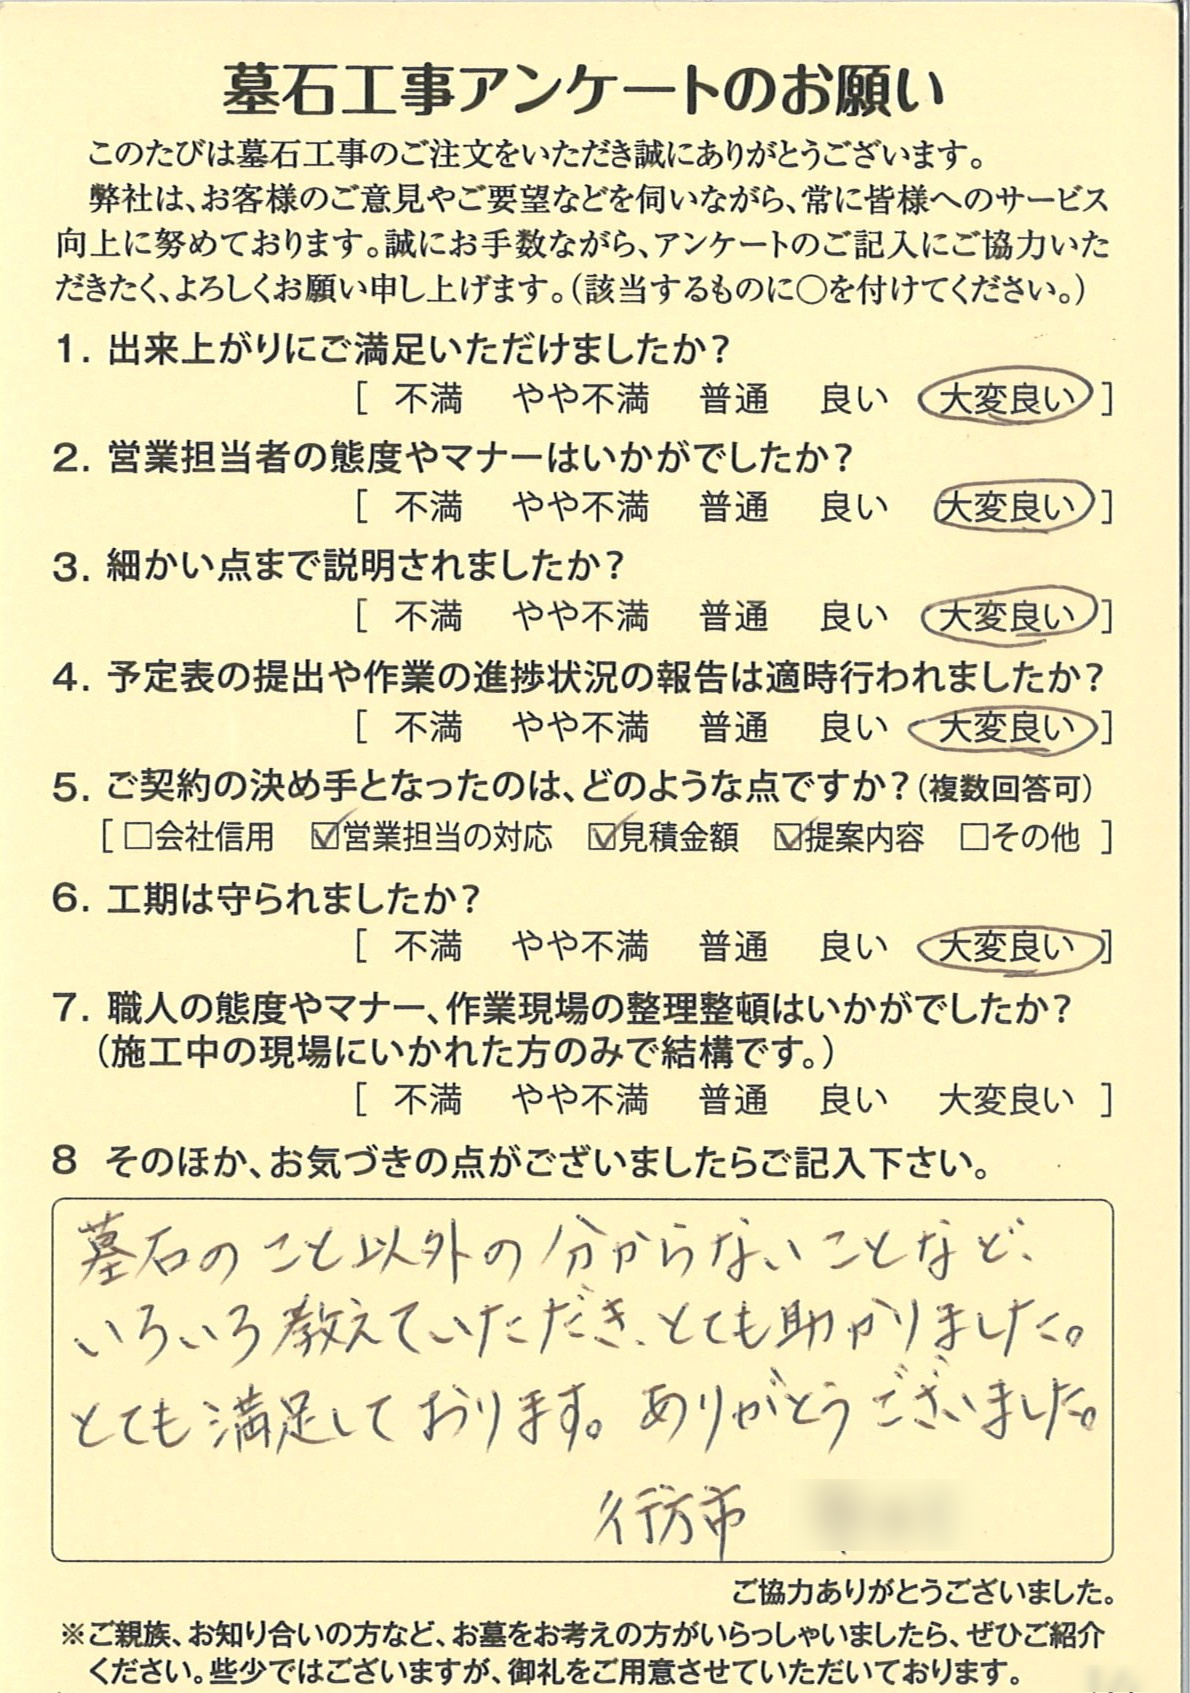 墓石工事アンケートのお願い
このたびは墓石工事のご注文をいただき誠にありがとうございます。
弊社は、お客様のご意見やご要望などを伺いながら、常に皆様へのサービス
向上に努めております。誠にお手数ながら、アンケートのご記入にご協力いた
だきたく、よろしくお願い申し上げます。（該当するものに○を付けてください。）
1. 出来上がりにご満足いただけましたか？
[ 不満 やや不満 普通 良い 大変良い ]
2. 営業担当者の態度やマナーはいかがでしたか？
[ 不満 やや不満 普通 良い 大変良い ]
3. 細かい点まで説明されましたか？
[ 不満 やや不満 普通 良い 大変良い ]
4. 予定表の提出や作業の進捗状況の報告は適時行われましたか？
[ 不満 やや不満 普通 良い 大変良い ]
5. ご契約の決め手となったのは、どのような点ですか？（複数回答可）
[ □会社信用 ☑営業担当の対応 ☑見積金額 ☑提案内容 □その他 ]
6. 工期は守られましたか？
[ 不満 やや不満 普通 良い 大変良い ]
7. 職人の態度やマナー、作業現場の整理整頓はいかがでしたか？
（施工中の現場にいかれた方のみで結構です。）
[ 不満 やや不満 普通 良い 大変良い ]
8 そのほか、お気づきの点がございましたらご記入下さい。
墓石のこと以外の分からないことなど、
いろいろ教えていただき、とても助かりました。
とても満足しております。ありがとうございました。
行方市
ご協力ありがとうございました。
※ご親族、お知り合いの方など、お墓をお考えの方がいらっしゃいましたら、ぜひご紹介
ください。些少ではございますが、御礼をご用意させていただいております。